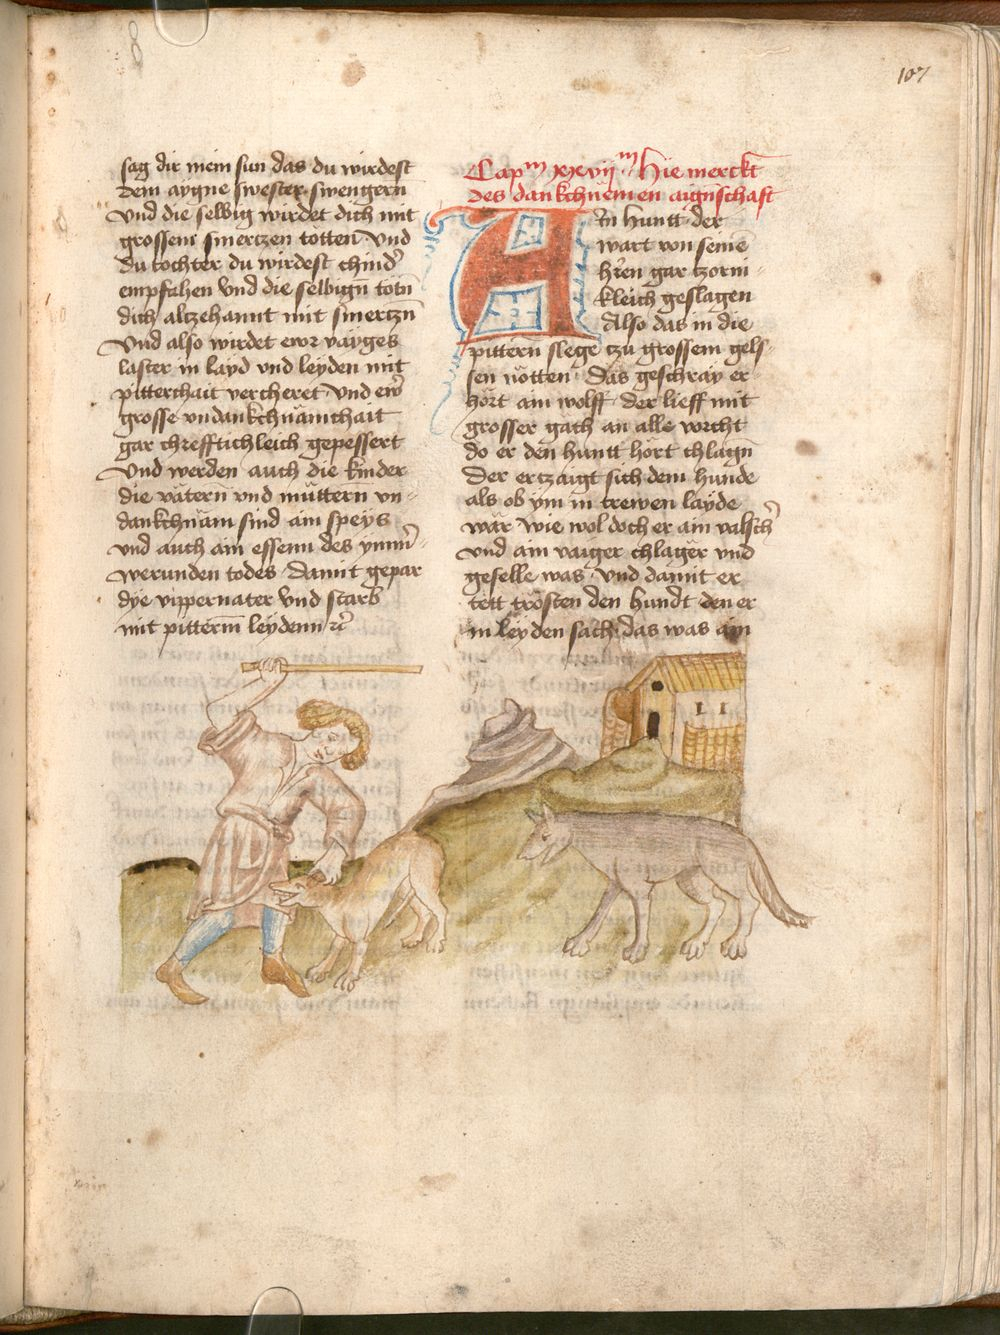 107
sag dir mein sun das du wirdest
dem aygne swester swengern
vnd die selbig wirdet dich mit
grossem smertzen tötten vnd
du tochter du wirdest chinder
empfahen vnd die selbigñ tötñ
dich altzehannt mit smertzñ
Vnd also wirdet ewr vayges
laster in layd vnd leyden mit
pitterchait vercheret vnd ewr
grosse vndankchnämchait
gar chrefftichleich gepessert
Vnd werden auch die kinder
die vätern vnd müttern vn-
dankchnäm sind ain speys
vnd auch ain essenn des ymmer-
werunden todes Damit gepar
dye vippernater vnd starb
mit pitterm̃ leydenn ꝛc
Capᵐ xxvijᵐ Hie merckt
des dankchnemen aignschaft
AIn huntt der
wart von seinē
hr̃en gar zorni-
kleich geslagen
Also das in die
pittern̄ slege tzu grossem gelf-
fen nötten Das geschray er-
hört ain wolff der lieff mit
grosser gäch an alle vorcht
do er den huntt hört chlagñ
Der ertzaigt sich dem hunde
als ob ym in trewen layde
wär wie wol doch er ain valscher
vnd ain vaiger chlager vnd
geselle was vnd damit er
tett trösten den hundt den er
in leyden sach das was ain